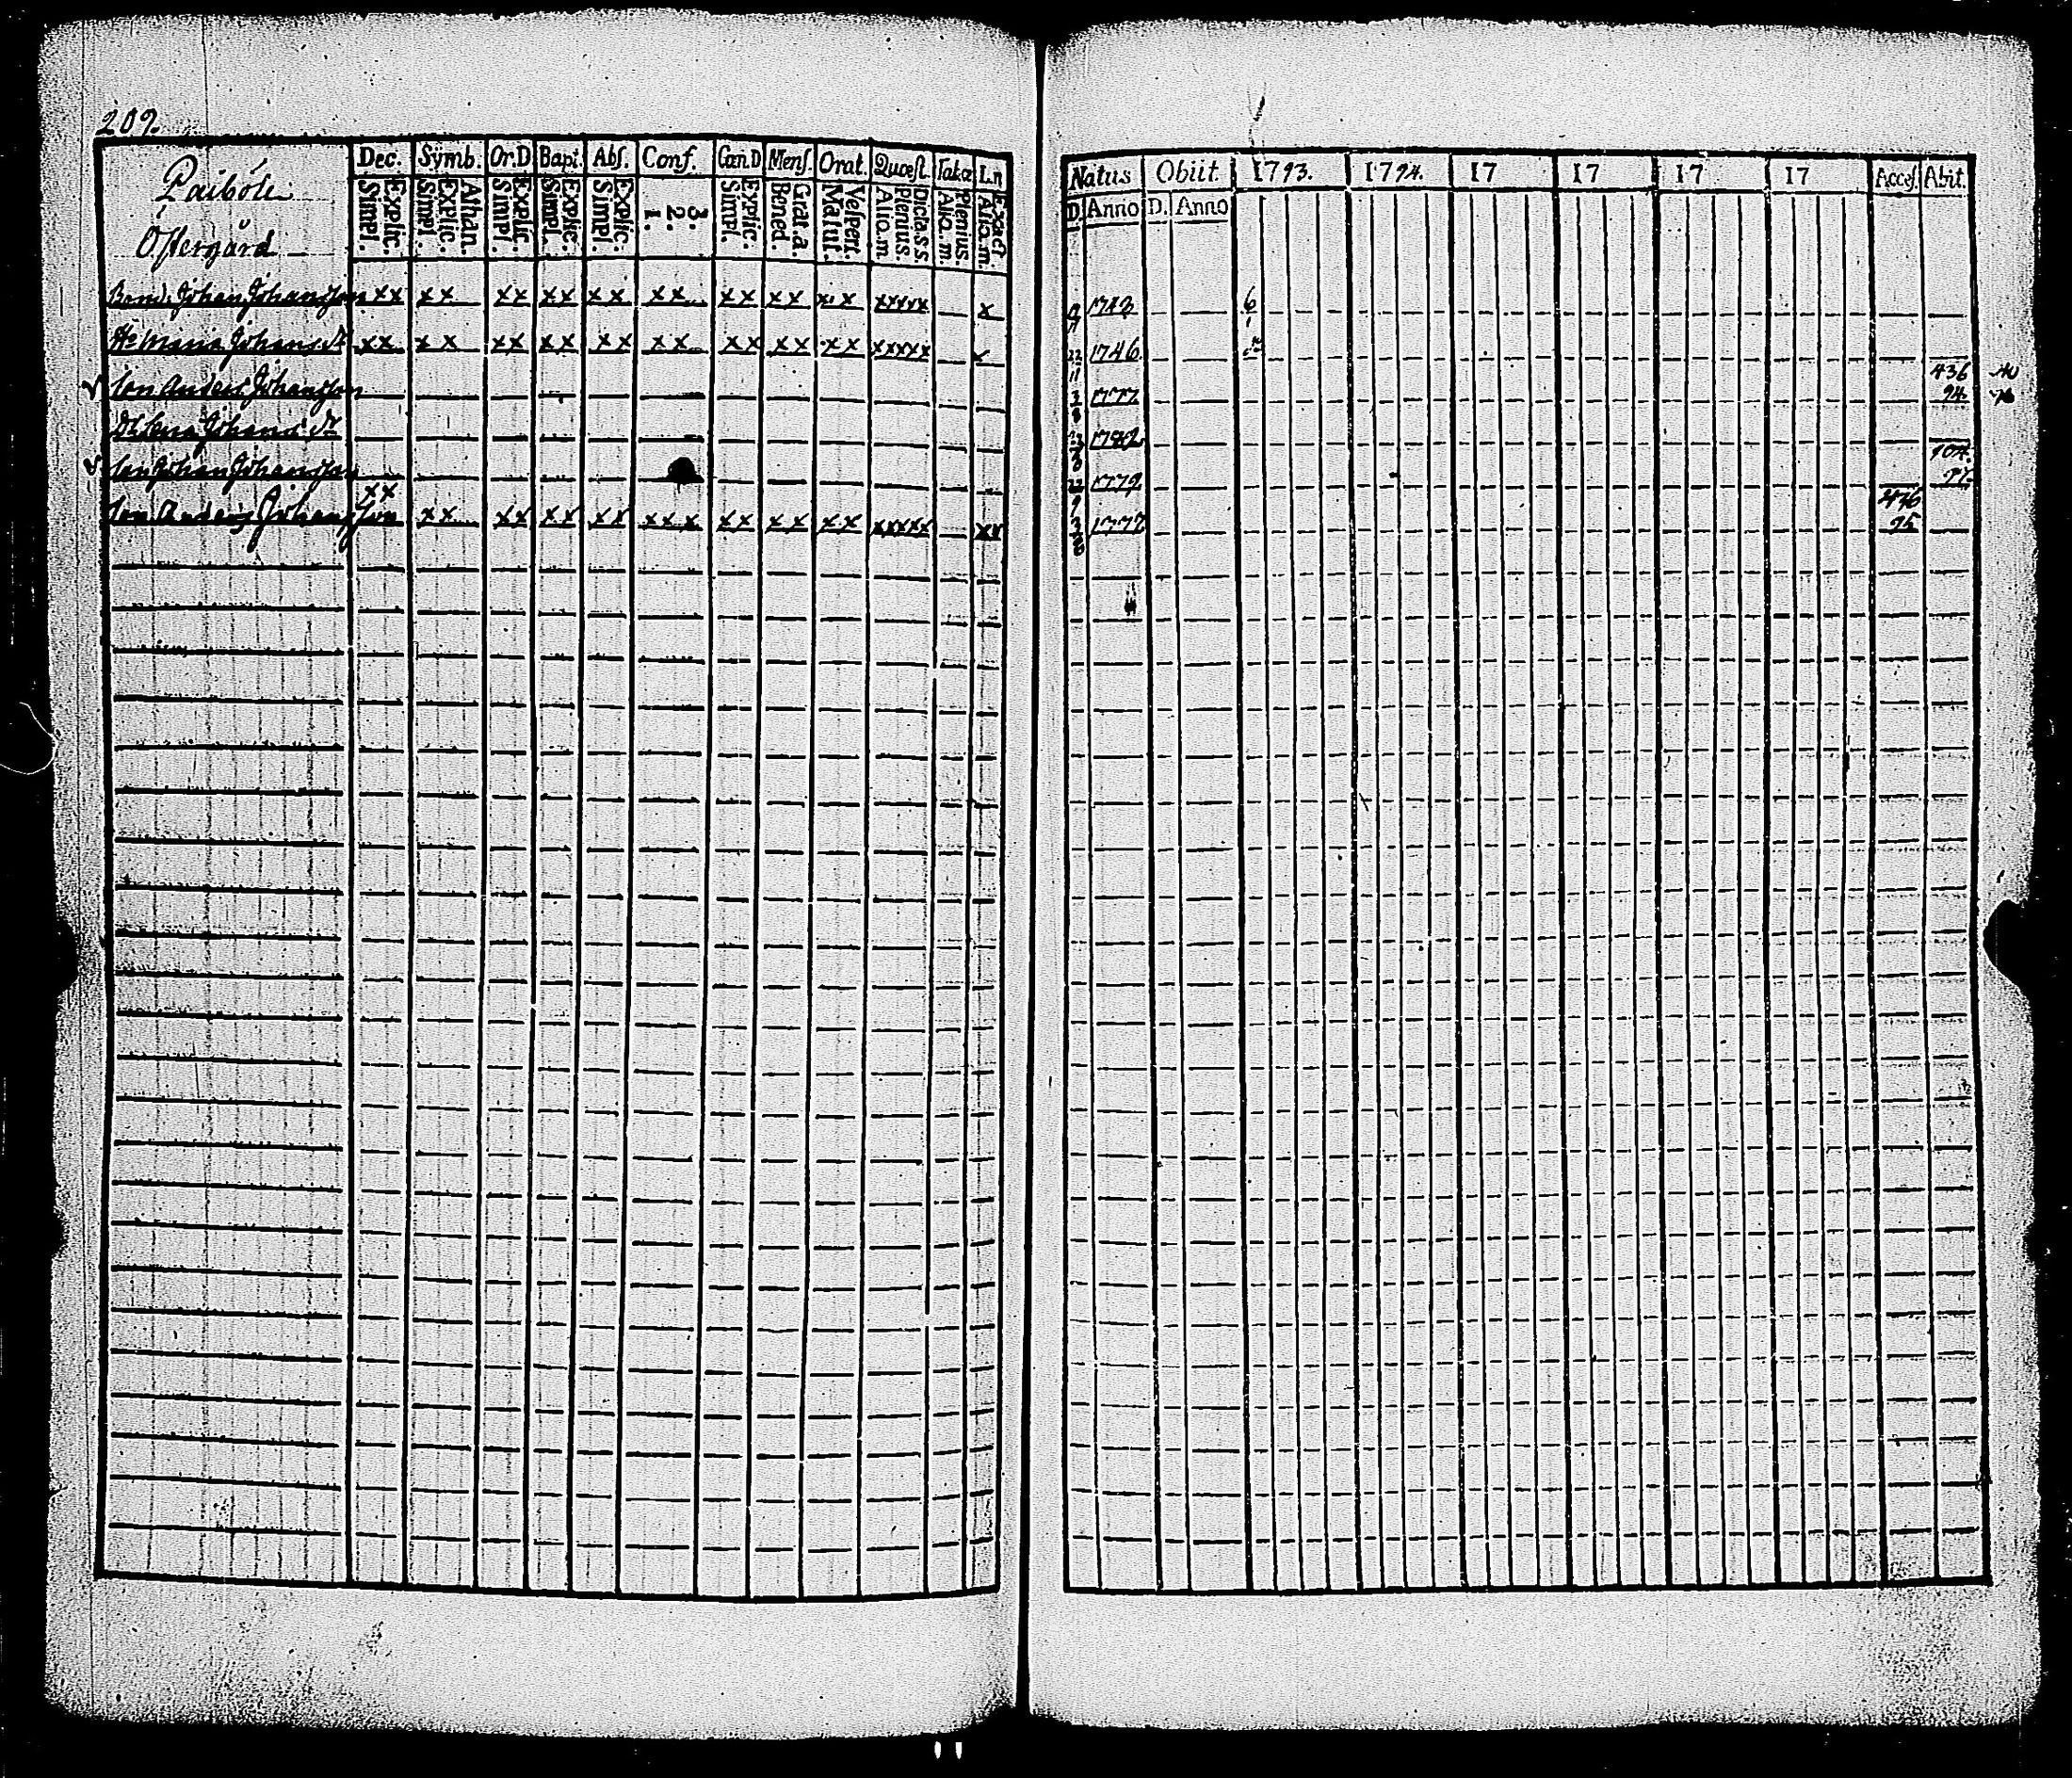 209.
Paiböle
Östergård
Dec. Symb. Or.D Bapt. Abs. Conf. Cœn.D Mens. Orat. Quæst. Tabæ L.n
Explic. Simpl. Athan. Explic. Simpl. Explic. Simpl. Explic. Simpl. Explic. Simpl. 3. 2. 1. Explic. Simpl. Grat. a. Bened. Vespert. Matut. Dicta s.s. Plenius. Alio. m. Plenius. Alio. m. Exact Alio. m.
Bond. Johan Johansson xx xx xx xx xx xx xx xx xx xxxxx x
Hu Maria Johans dr xx xx xx xx xx xx xx xx xx xxxxx x
Son Anders Johansson
Dr Lena Johans dr
Son Johan Johansson
Son Anders Johansson xx xx xx xx xx xxx xx xx xx xxxxx xx
Natus Obiit. 1793. 1794. 17 17 17 17 Acces. Abit.
D. Anno D. Anno
1743 6 1
22 11 1746
3 8 1777 436 94
1782
22 9 1779 104. 97.
3 8 1777 446 95